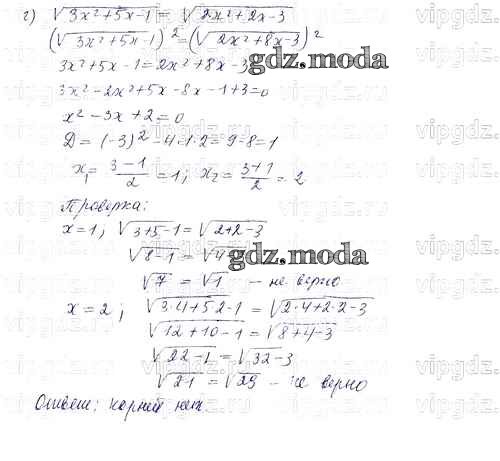 г) √3x²+5x-1 = √2x²+2x-3
(√3x²+5x-1)² = (√2x²+8x-3)²
3x²+5x-1=2x²+8x-3
gdz.moda
3x²-2x²+5x-8x-1+3=0
x²-3x+2=0
D=(-3)²-4·1·2=9-8=1
x₁=(3-1)/2=1; x₂=(3+1)/2=2
Проверка:
x=1, √3+5-1=√2+2-3
√8-1=√4
gdz.moda
√7 = √1 - не верно
x=2; √3·4+5 2-1 = √2·4+2·2-3
√12+10-1=√8+4-3
√22-1=√32-3
√21=√29 - не верно
Ответ: корней нет.
vipgdz.ru